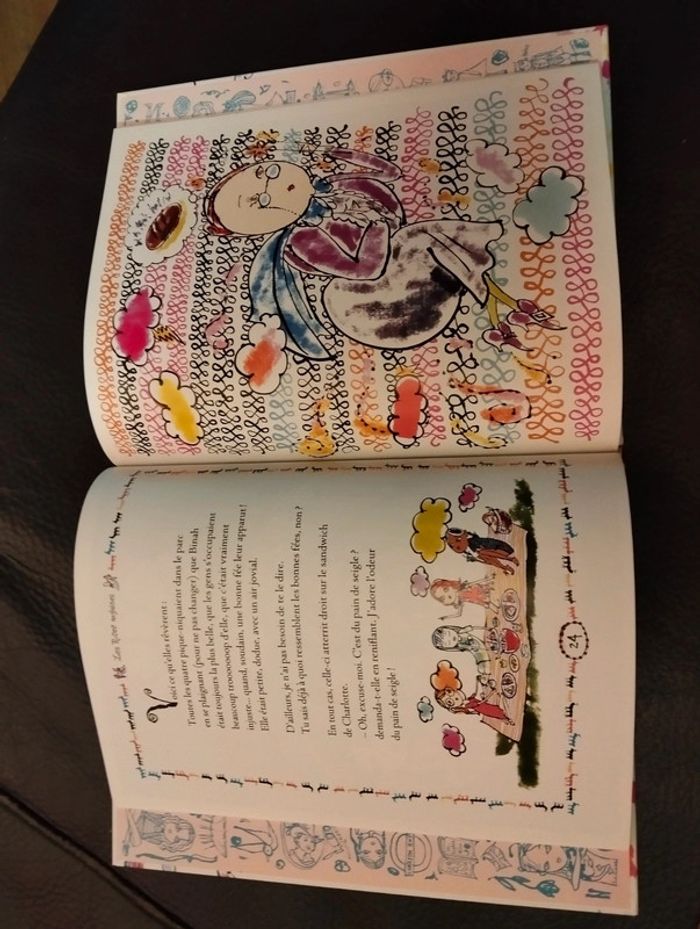 Les Roses anglaises
Voici ce qu'elles rêvèrent :
Toutes les quatre pique-niquaient dans le parc
en se plaignant (pour ne pas changer) que Binah
était toujours la plus belle, que les gens s'occupaient
beaucoup trooooooop d'elle, que c'était vraiment
injuste... quand, soudain, une bonne fée leur apparut !
Elle était petite, dodue, avec un air jovial.
D'ailleurs, je n'ai pas besoin de te le dire.
Tu sais déjà à quoi ressemblent les bonnes fées, non ?
En tout cas, celle-ci atterrit droit sur le sandwich
de Charlotte.
– Oh, excuse-moi. C'est du pain de seigle ?
demanda-t-elle en reniflant. J'adore l'odeur
du pain de seigle !
24